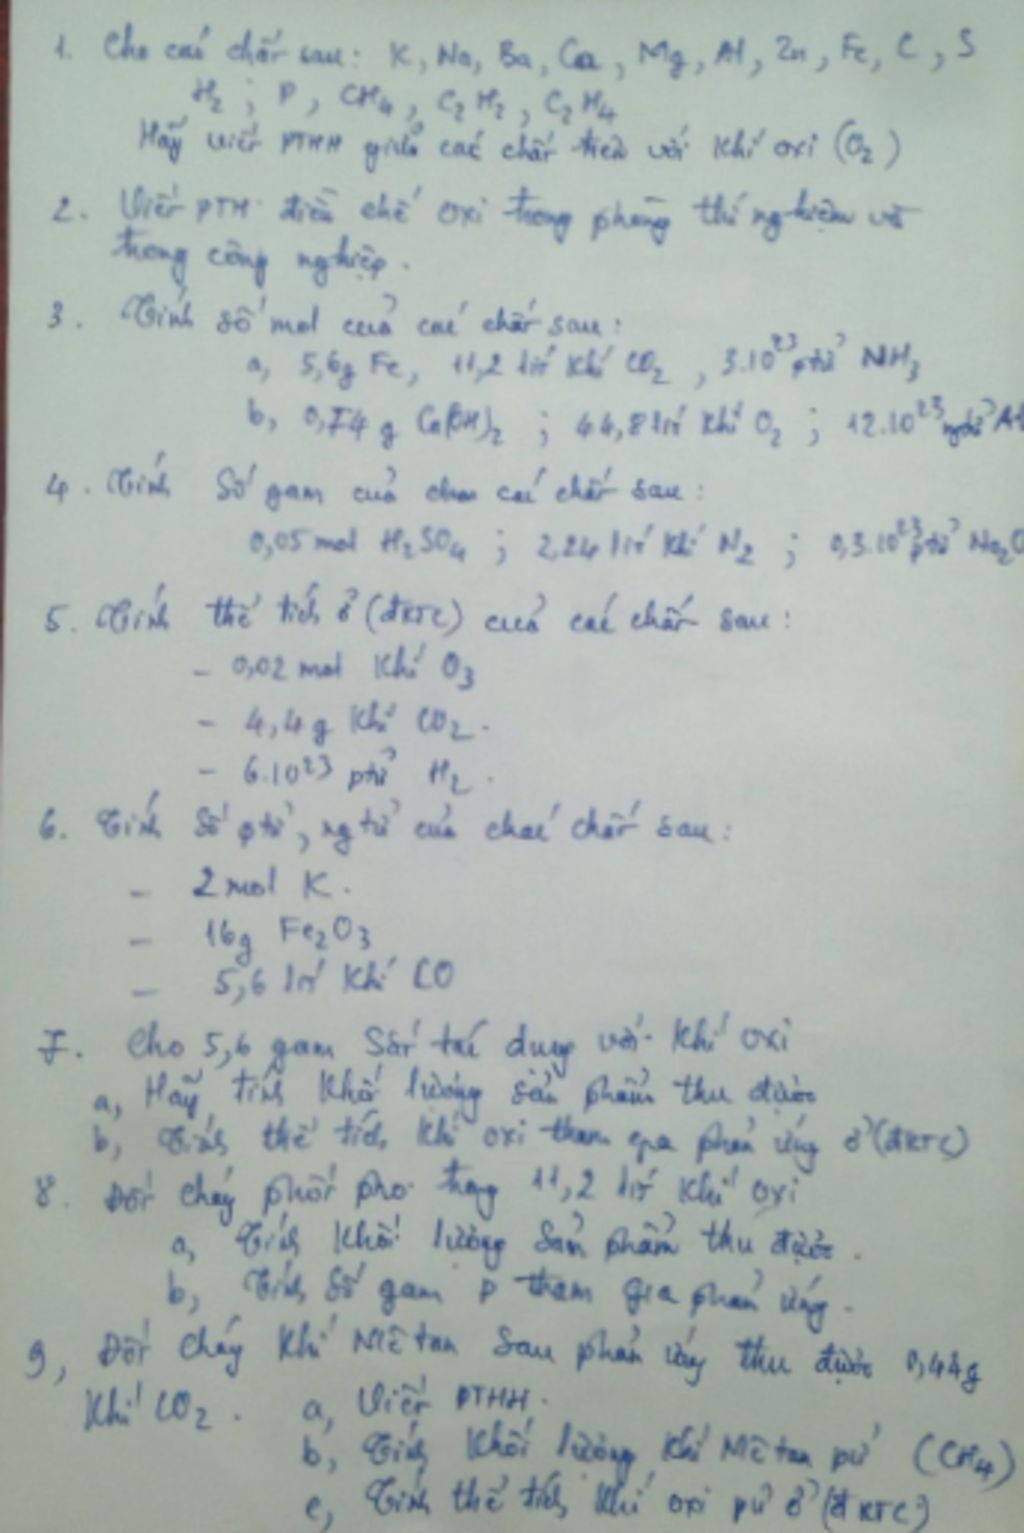 1. Cho các chất sau: K, Na, Ba, Ca, Mg, Al, Zn, Fe, C, S
H2; P, CH4, C2H2, C2H4
Hãy viết PTHH giữa các chất trên với khí oxi (O2)
2. Viết PTH điều chế oxi trong phòng thí nghiệm và
trong công nghiệp.
3. Tính số mol của các chất sau:
a, 5,6g Fe, 11,2 lít khí CO2, 3.10^23 ptử NH3
b, 0,74 g Ca(OH)2; 44,8 lít khí O2; 12.10^23 ngtử Al
4. Tính số gam của các chất sau:
0,05 mol H2SO4; 2,24 lít khí N2; 0,3.10^23 ptử Na2O
5. Tính thể tích ở (đktc) của các chất sau:
- 0,02 mol khí O3
- 4,4g khí CO2.
- 6.10^23 ptử H2.
6. Tính số ptử, ngtử của các chất sau:
- 2 mol K.
- 16g Fe2O3
- 5,6 lít khí CO
7. Cho 5,6 gam Sắt tác dụng với khí oxi
a, Hãy tính khối lượng sản phẩm thu được
b, Tính thể tích khí oxi tham gia phản ứng ở (đktc)
8. Đốt cháy phốt pho trong 11,2 lít khí oxi
a, Tính khối lượng sản phẩm thu được.
b, Tính số gam P tham gia phản ứng.
9, Đốt cháy khí Mê tan sau phản ứng thu được 0,44g
khí CO2. a, Viết PTHH.
b, Tính khối lượng khí Mê tan pư (CH4)
c, Tính thể tích khí oxi pư ở (đktc)